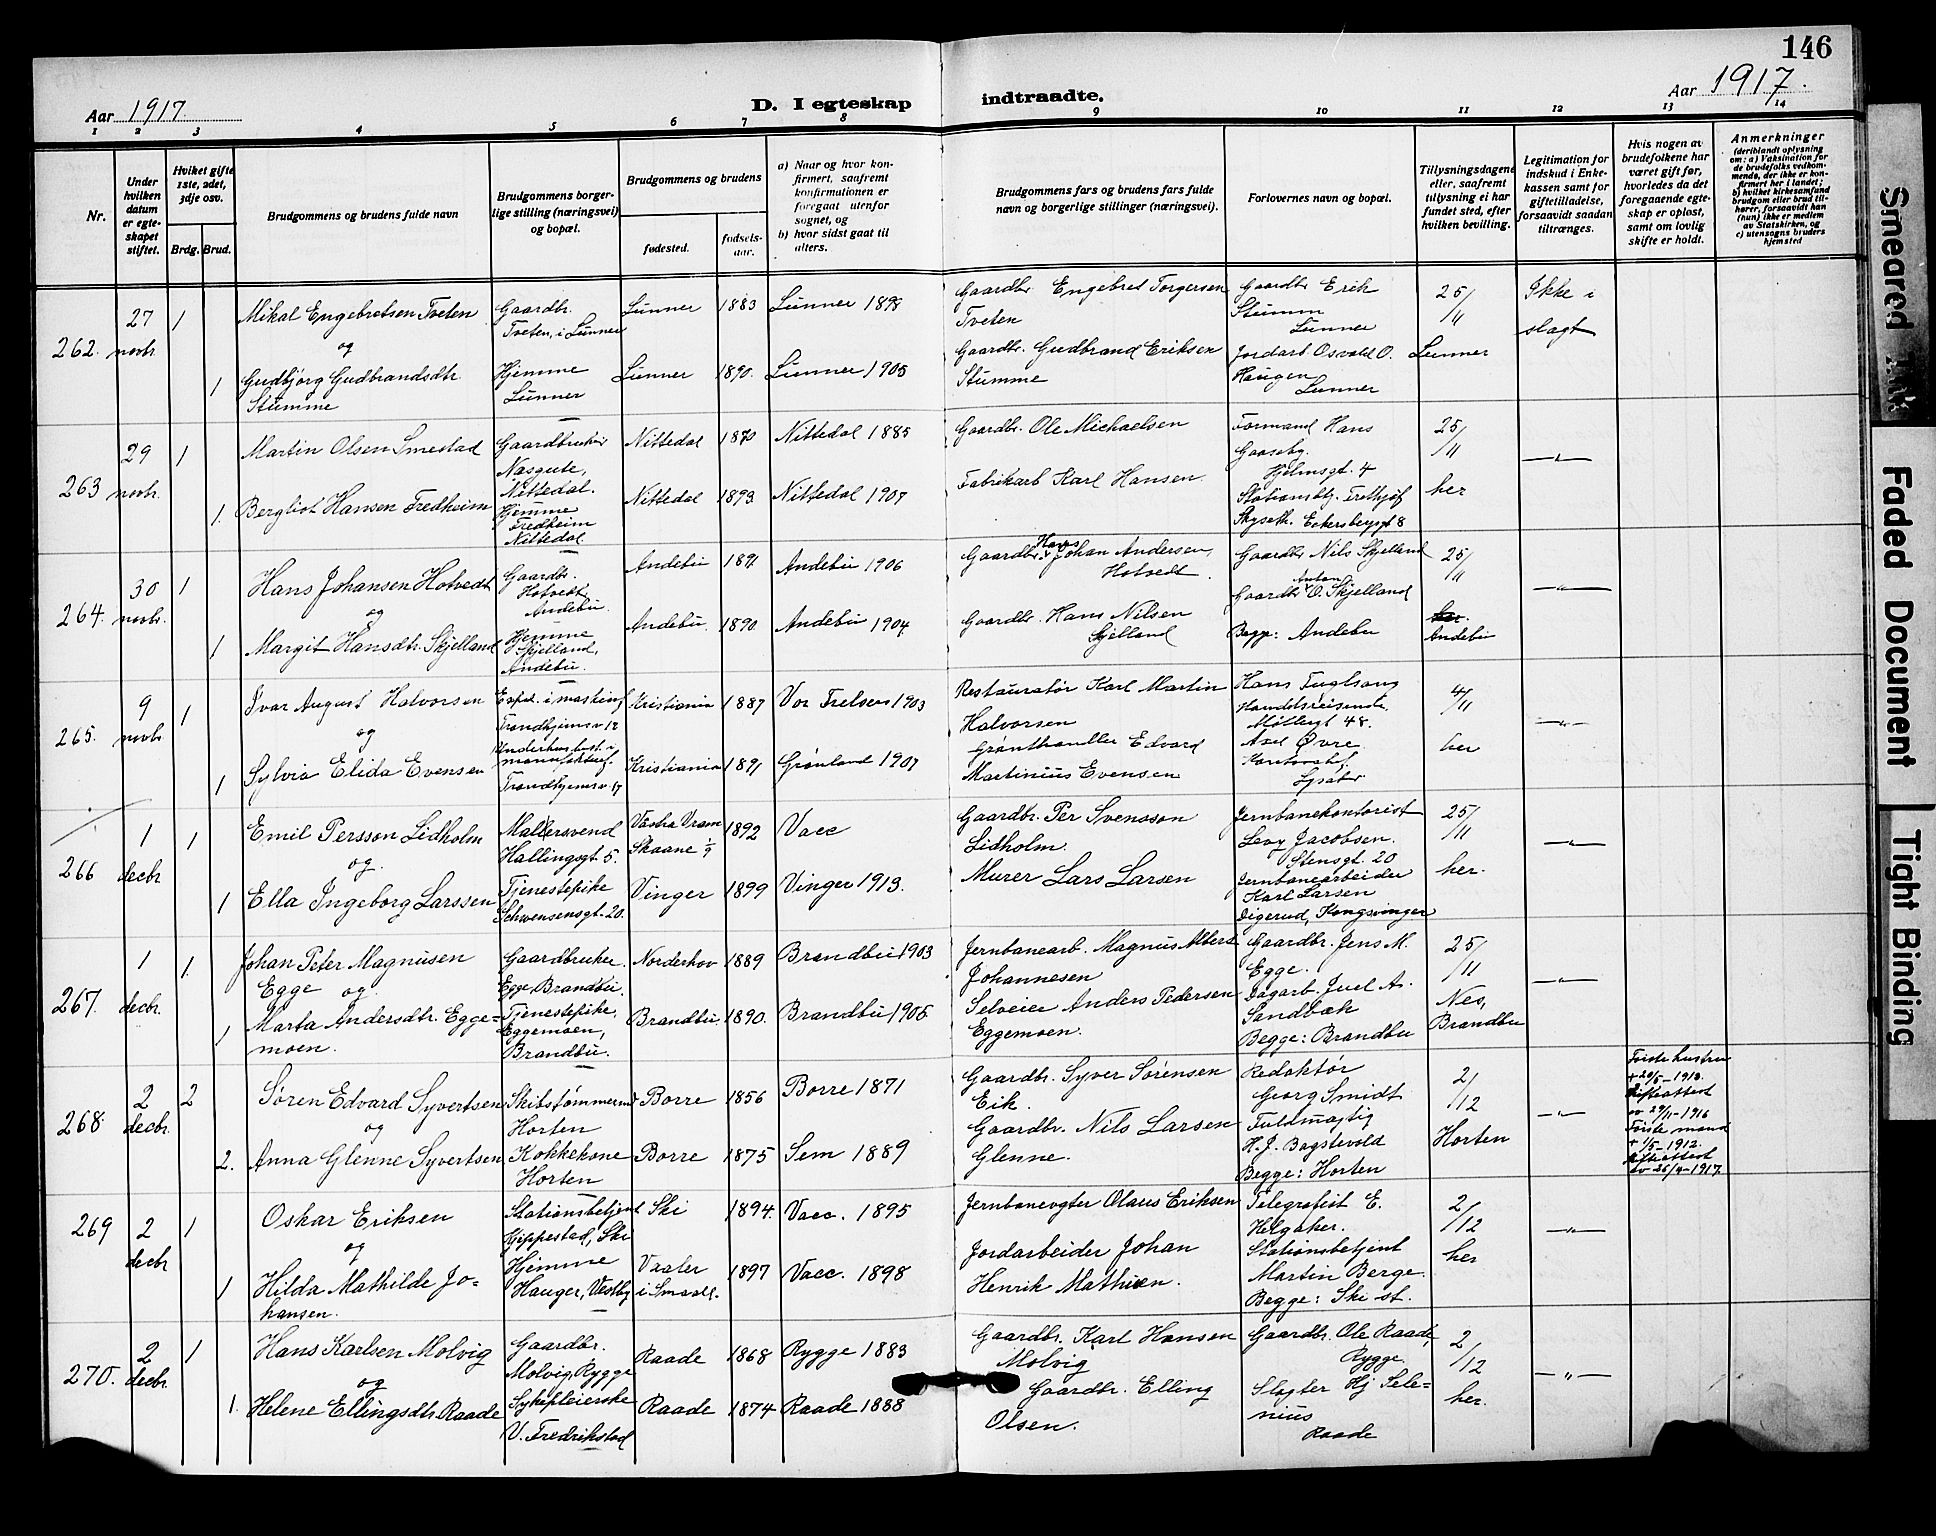 146
Aar 1917.
D. I egteskap indtraadte.
Aar 1917.
1 2 3 4 5 6 7 8 9 10 11 12 13 14
Nr.
Under hvilken datum er egteskapet stiftet.
Hvilket gifte 1ste, 2det, 3dje osv.
Brdg. Brud.
Brudgommens og brudens fulde navn
Brudgommens borgerlige stilling (næringsvei) og bopæl.
Brudgommens og brudens
fødested.
fødselsaar.
a) Naar og hvor konfirmert, saafremt konfirmationen er foregaat utenfor sognet, og
b) hvor sidst gaat til alters.
Brudgommens fars og brudens fars fulde navn og borgerlige stillinger (næringsvei).
Forlovernes navn og bopæl.
Tillysningsdagene eller, saafremt tillysning ei har fundet sted, efter hvilken bevilling.
Legitimation for indskud i Enkekassen samt for giftetilladelse, forsaavidt saadan tiltrænges.
Hvis nogen av brudefolkene har været gift før, hvorledes da det foregaaende egteskap er opløst, samt om lovlig skifte er holdt.
Anmerkninger
(deriblandt oplysning om: a) Vaksination for de brudefolks vedkommende, der ikke er konfirmert her i landet; b) hvilket kirkesamfund brudgom eller brud tilhører, forsaavidt han (hun) ikke er medlem av Statskirken, og c) utensogns bruders hjemsted
262. 27 novbr. 1 Mikal Engebretsen Tveten Gaardbr. Tveten, i Lunner Lunner 1883 Lunner 1898 Gaardbr Engebret Torgersen Tveten Gaardbr Erik Stumm Lunner 25/11 Ikke i slagt
og
1 Gudbjörg Gudbrandsdtr. Stumme Hjemme Lunner Lunner 1890. Lunner 1905 Gaardbr. Gudbrand Eriksen Stumme Jordarb Osvald O. Haugen Lunner Lunner
263 29 novbr. 1 Martin Olsen Smestad Gaardbruker Nittedal. Nittedal 1870 Nittedal 1885 Gaardbr. Ole Michaelsen Formand Hans Gaaseby. Hjelmsgt. 4 25/11 —"—
1. Bergliot Hansen Fredheim Hjemme Fredheim Nittedal Nittedal 1893 Nittedal 1907 Fabrikarb Karl Hansen Stationsbtj. Skyseth. Eckersbergsgt 8 her
264. 30 novbr. 1 Hans Johansen Hotvedt Gaardbr. Hotvedt Andebu. Andebu 1891 Andebu 1906 Gaardbr. Hans Johan Andersen, Hotvedt Gaardbr Nils Skjelland 25/11 —"—
og
1 Margit Hansdtr. Skjelland Hjemme Skjelland, Andebu. Andebu. 1890 Andebu 1904 Gaardbr. Hans Nilsen Skjelland Gaardbr Anton O. Skjelland Begge: Andebu her. Andebu
265. 9 novbr 1 Ivar August Halvorsen Exped. i maskinf Trondhjemsv 12 Kristiania 1887 Vor Frelsers 1903 Restauratør Karl Martin Halvorsen Hans Fuglsang Handelsreisende Møllergt 48. 4/11 —"—
og
1 Sylvia Elida Evensen Trondhjemsv. 17 Kristiania 1891 Grønland 1907 Grønthandler Edvard Martinius Evensen Axel Øvre. her
266 1 decbr 1 Emil Persson Lidholm Malersvend Hallingsgt. 5. Västra Vram Skaane 1892 Vacc Gaardbr. Per Svensson Lidholm. Jernbanekontorist Levy Jacobsen. Stensgt. 20 25/11 —"—
og.
1 Ella Ingeborg Larssen Tjenestepike Schwensensgt. 20. Vinger 1899 Vinger 1913. Murer Lars Larsen Jernbanearbeider Karl Larsen Digerud, Kongsvinger her.
267. 1 decbr. 1 Johan Peter Magnusen Egge Gaardbruker. Egge, Brandbu. Norderhov 1889 Brandbu 1903 Jernbanearb. Magnus Albert Johannesen Gaardbr. Jens M. Egge. 25/11 —"—
og
1 Marta Andersdtr. Eggemoen. Tjenestepike, Eggemoen, Brandbu. Brandbu. 1890. Brandbu 1905. Selveier Anders Pedersen Eggemoen. Dagarb. Juel A. Sandbæk Begge: Brandbu Nes, Brandbu
268. 2 decbr. 2 Søren Edvard Syvertsen Skibstømmermd Horten Borre 1856 Borre 1871 Gaardbr. Syver Sørensen Eik. Redaktør Georg Smidt 2/12 —"— Første hustru + 20/5-1913. Skifteattest av 29/11-1916
og
2. Anna Glenne Syvertsen Kokkekone Horten Borre 1875 Sem 1889 Gaardbr. Nils Larsen Glenne. Fuldmægtig H. J. Bogstevold Begge: Horten Horten Første mand + 1/5-1912. Skifteattest av 25/4-1917
269 2 decbr 1 Oskar Eriksen Stationsbetjent Kjeppestad, Ski Ski 1894. Vacc. 1895 Jernbanevogter Olaus Eriksen Telegrafist E. Helgaker. 2/12 —"—
og
1 Hilda Mathilde Johansen. Hjemme Hauger, Vestby Vaaler i Smaale. 1897 Vacc. 1898 Jordarbeider Johan Henrik Mathisen. Stationsbetjent Martin Berge. Begge: Ski st. her
270. 2 decbr. 1 Hans Karlsen Molvig Gaardbr. Molvig, Rygge Raade 1868 Rygge 1883 Gaardbr. Karl Hansen Molvig Gaardbr. Ole Raade, Rygge. 2/12 —"—
og
1. Helene Ellingsdtr. Raade Sykepleierske V. Fredrikstad Raade 1874 Raade 1888 Gaardbr. Elling Olsen. Slagter Hj Selenius Raade her.
Smeared Ink
Faded Document
Tight Binding